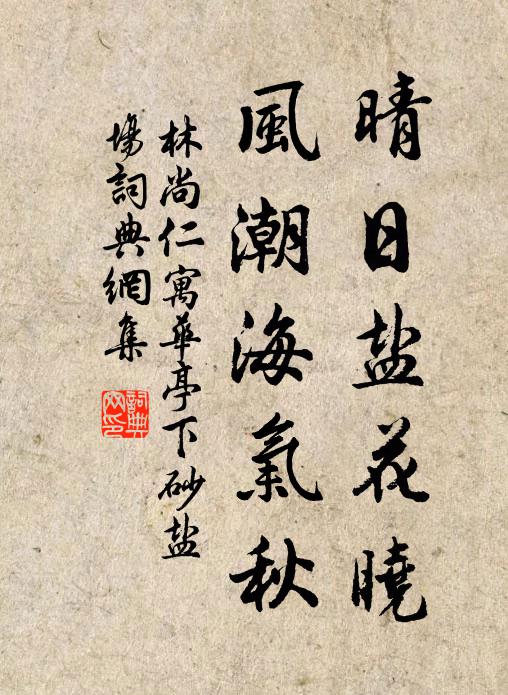 晴日盐花曉
風潮海氣秋
林尚仁寓華亭下砂盐
場詞典網集
詞典网印